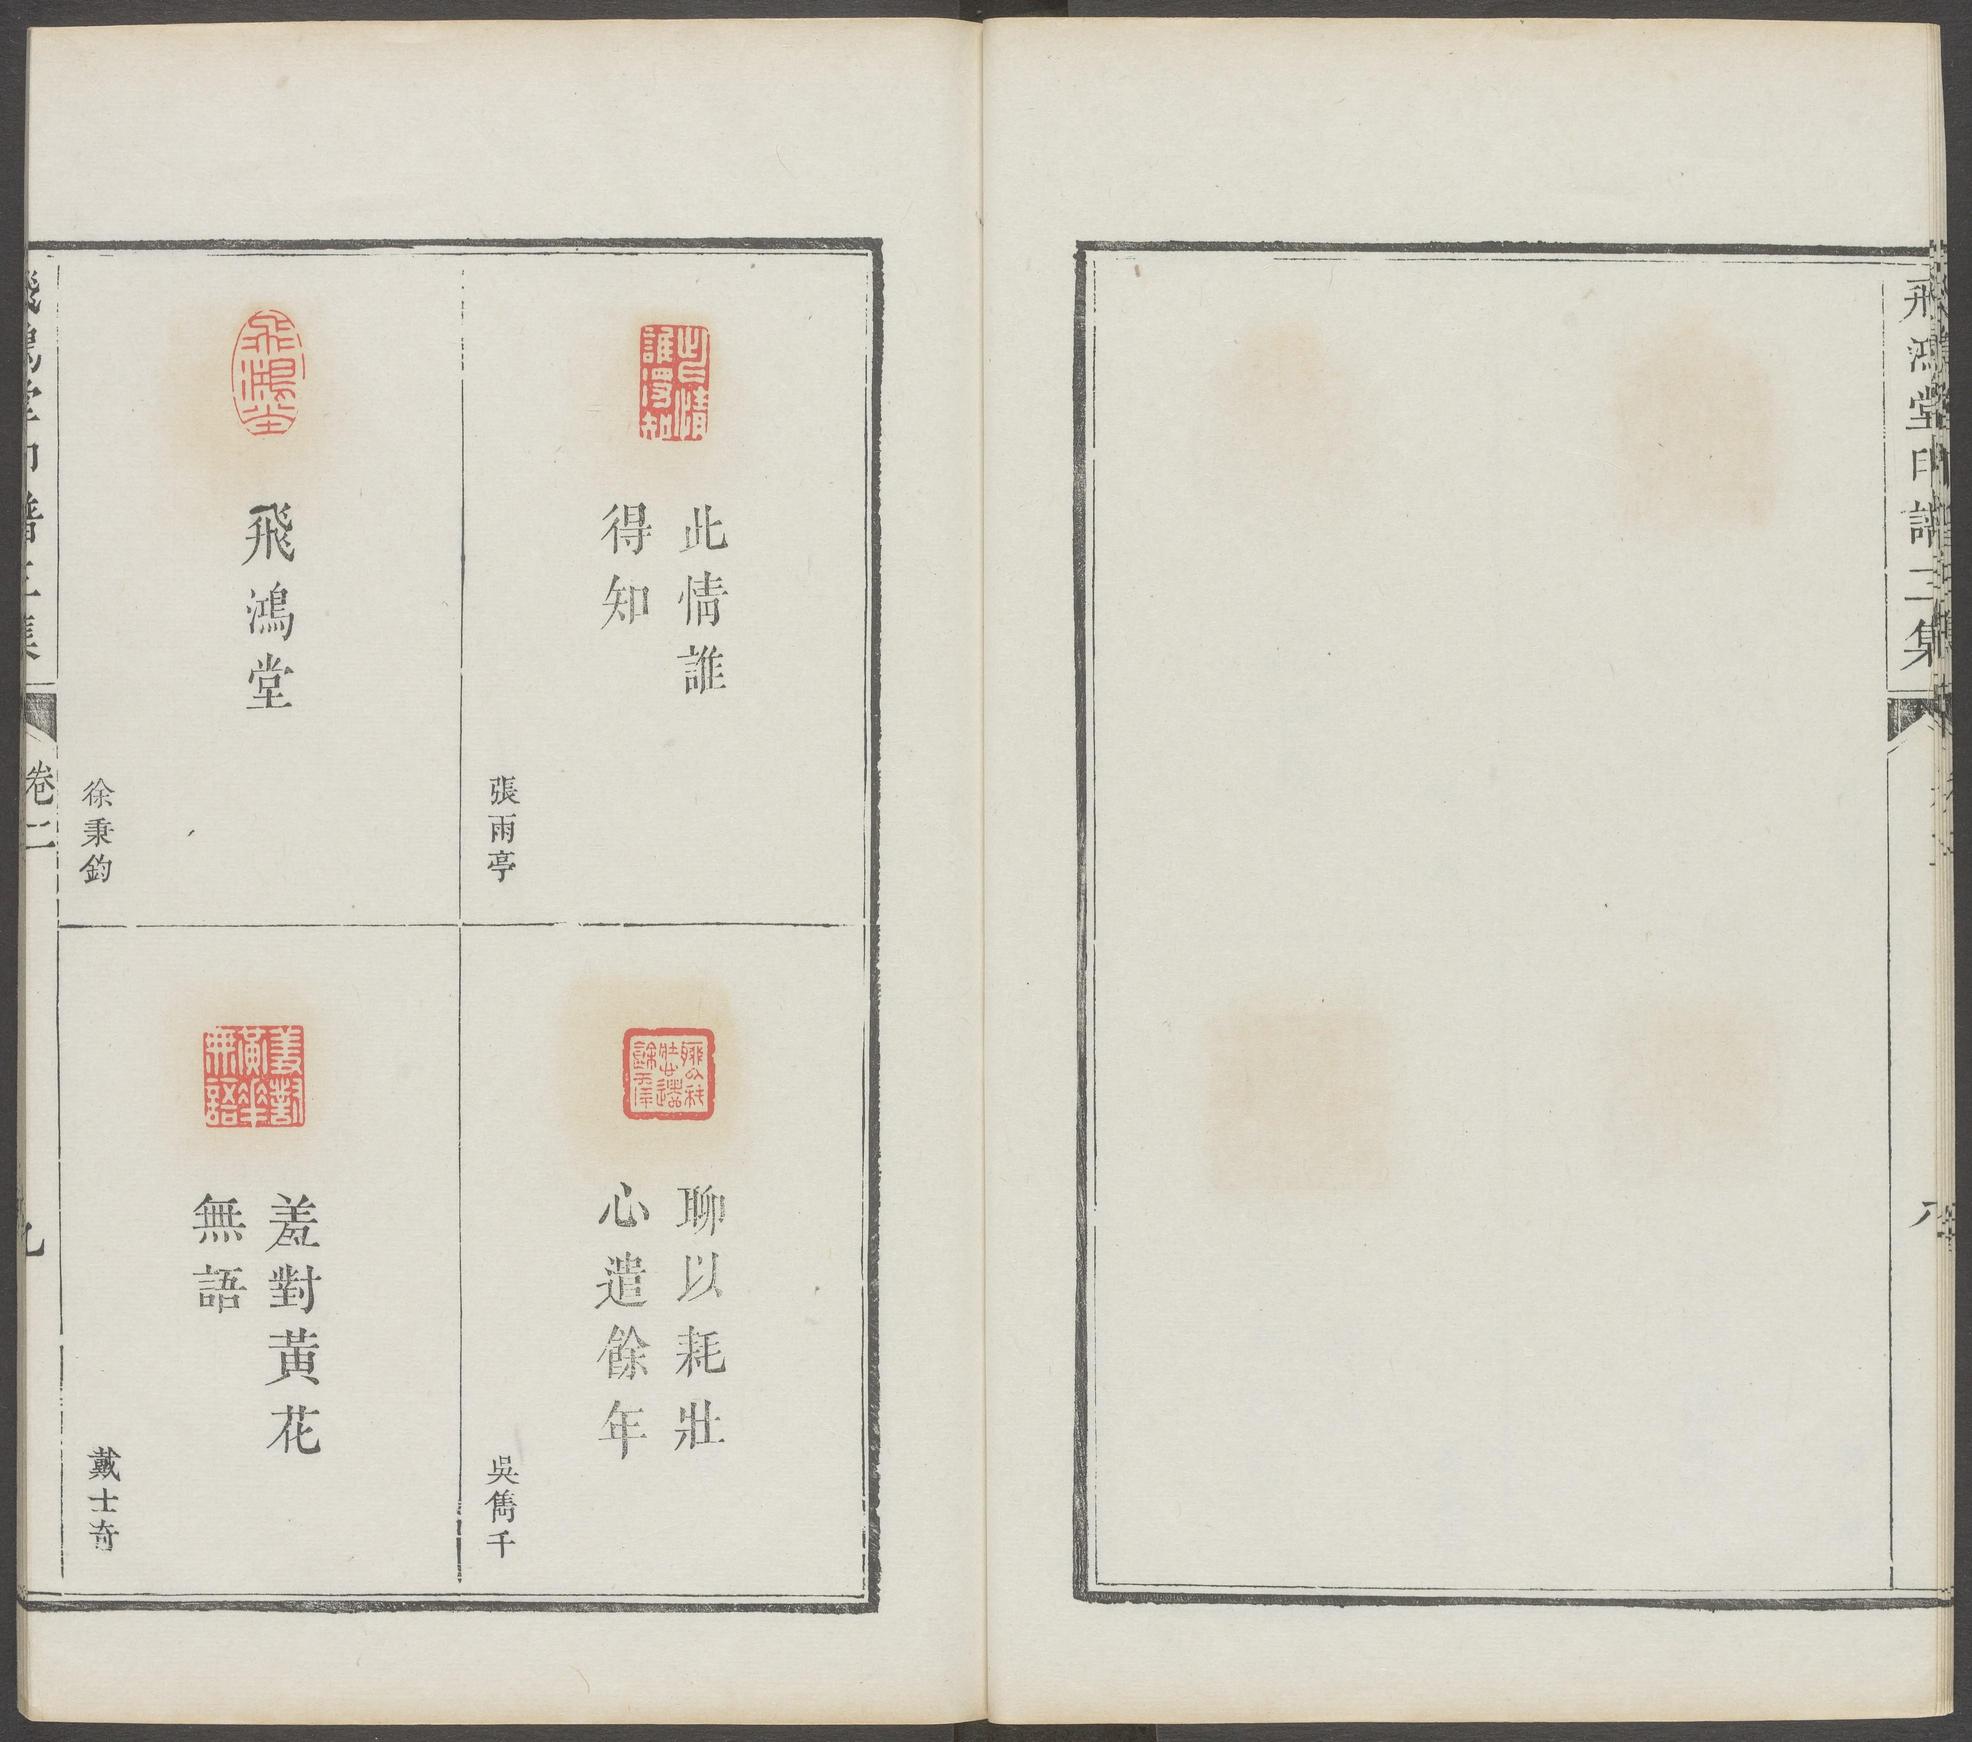 飛鴻堂印譜三集
此情誰
得知
張雨亭
聊以耗壯
心遣餘年
吳雋千
飛鴻堂
飛鴻堂
徐秉鈞
羞對黃花
無語
羞對黃花無語
戴士奇
此情誰得知
聊以耗壯心遣餘年
飛鴻堂印譜三集
卷二
九